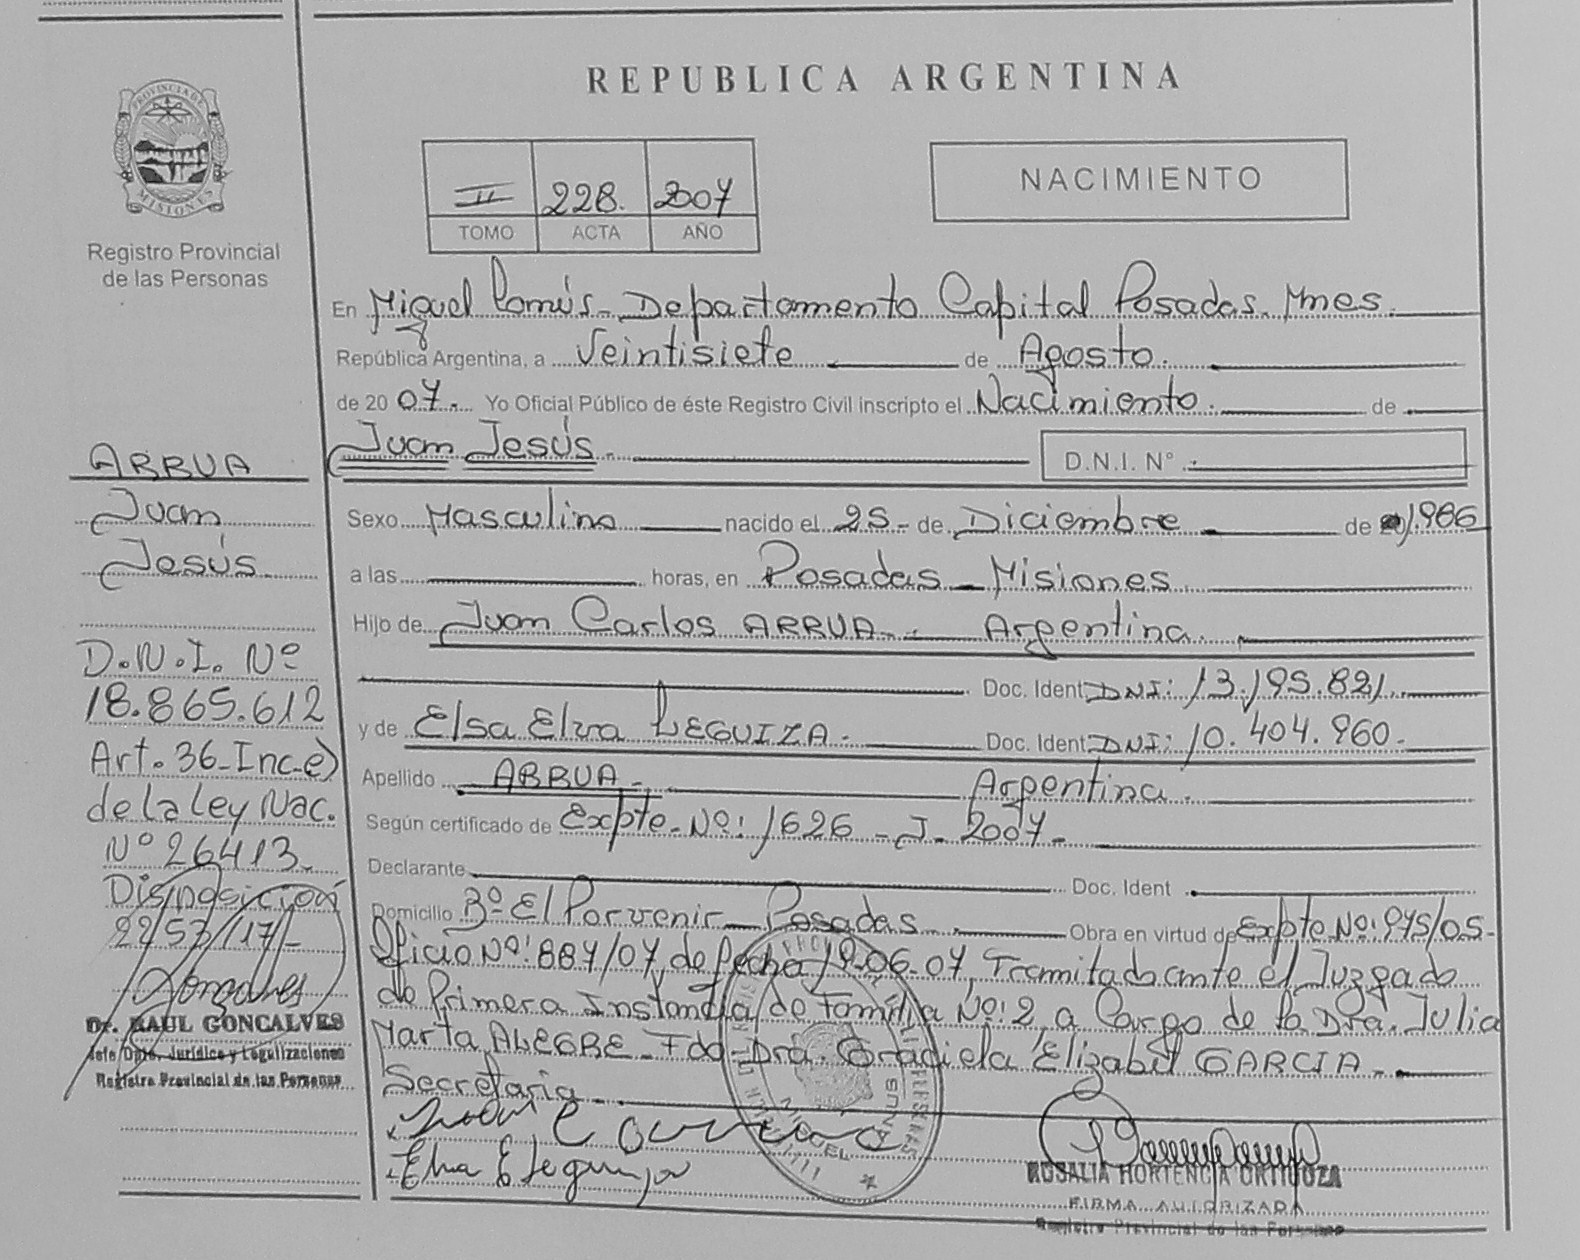 REPUBLICA ARGENTINA
PROVINCIA DE
MISIONES
Registro Provincial
de las Personas
II 228. 2007
TOMO ACTA AÑO
NACIMIENTO
En Miguel Lanús - Departamento Capital Posadas. Mnes.
República Argentina, a Veintisiete de Agosto.
de 20 07. Yo Oficial Público de éste Registro Civil inscripto el Nacimiento. de
Juan Jesús. D.N.I. N°
Sexo Masculino nacido el 25 - de Diciembre de 1.986
a las horas, en Posadas - Misiones.
Hijo de Juan Carlos ARRUA - Argentina.
Doc. Ident DNI: 13.195.821.
y de Elsa Elva LEGUIZA - Doc. Ident DNI: 10.404.960.
Apellido ARRUA - Argentina.
Según certificado de Expte. Nº: 1626 - J - 2007 -
Declarante Doc. Ident
Domicilio Bº El Porvenir - Posadas. Obra en virtud de Expte Nº: 975/05 -
Oficio Nº: 887/07, de fecha 19-06-07, Tramitado ante el Juzgado
de Primera Instancia de Familia Nº: 2, a Cargo de la Dra. Julia
Marta ALEGRE - Fdo - Dra. Graciela Elizabet GARCIA -
Secretaria -
ROSALIA HORTENCIA ORTIGOZA
FIRMA AUTORIZADA
Registro Provincial de las Personas
ARRUA
Juan
Jesús
D.N.I. Nº
18.865.612
Art. 36 - Inc. e)
de la Ley Nac.
Nº 26413 -
Disposición
2253/17 -
Dr. RAUL GONCALVES
Jefe Dpto. Jurídico y Legalizaciones
Registro Provincial de las Personas